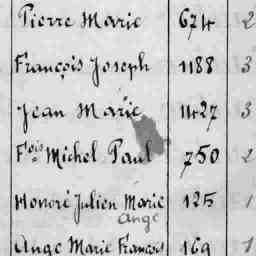 Pierre Marie 674 2
François Joseph 1188 3
Jean Marie 1427 3
Fois Michel Paul 750 2
Honoré Julien Marie 125 1
Ange
Ange Marie Francois 169 1